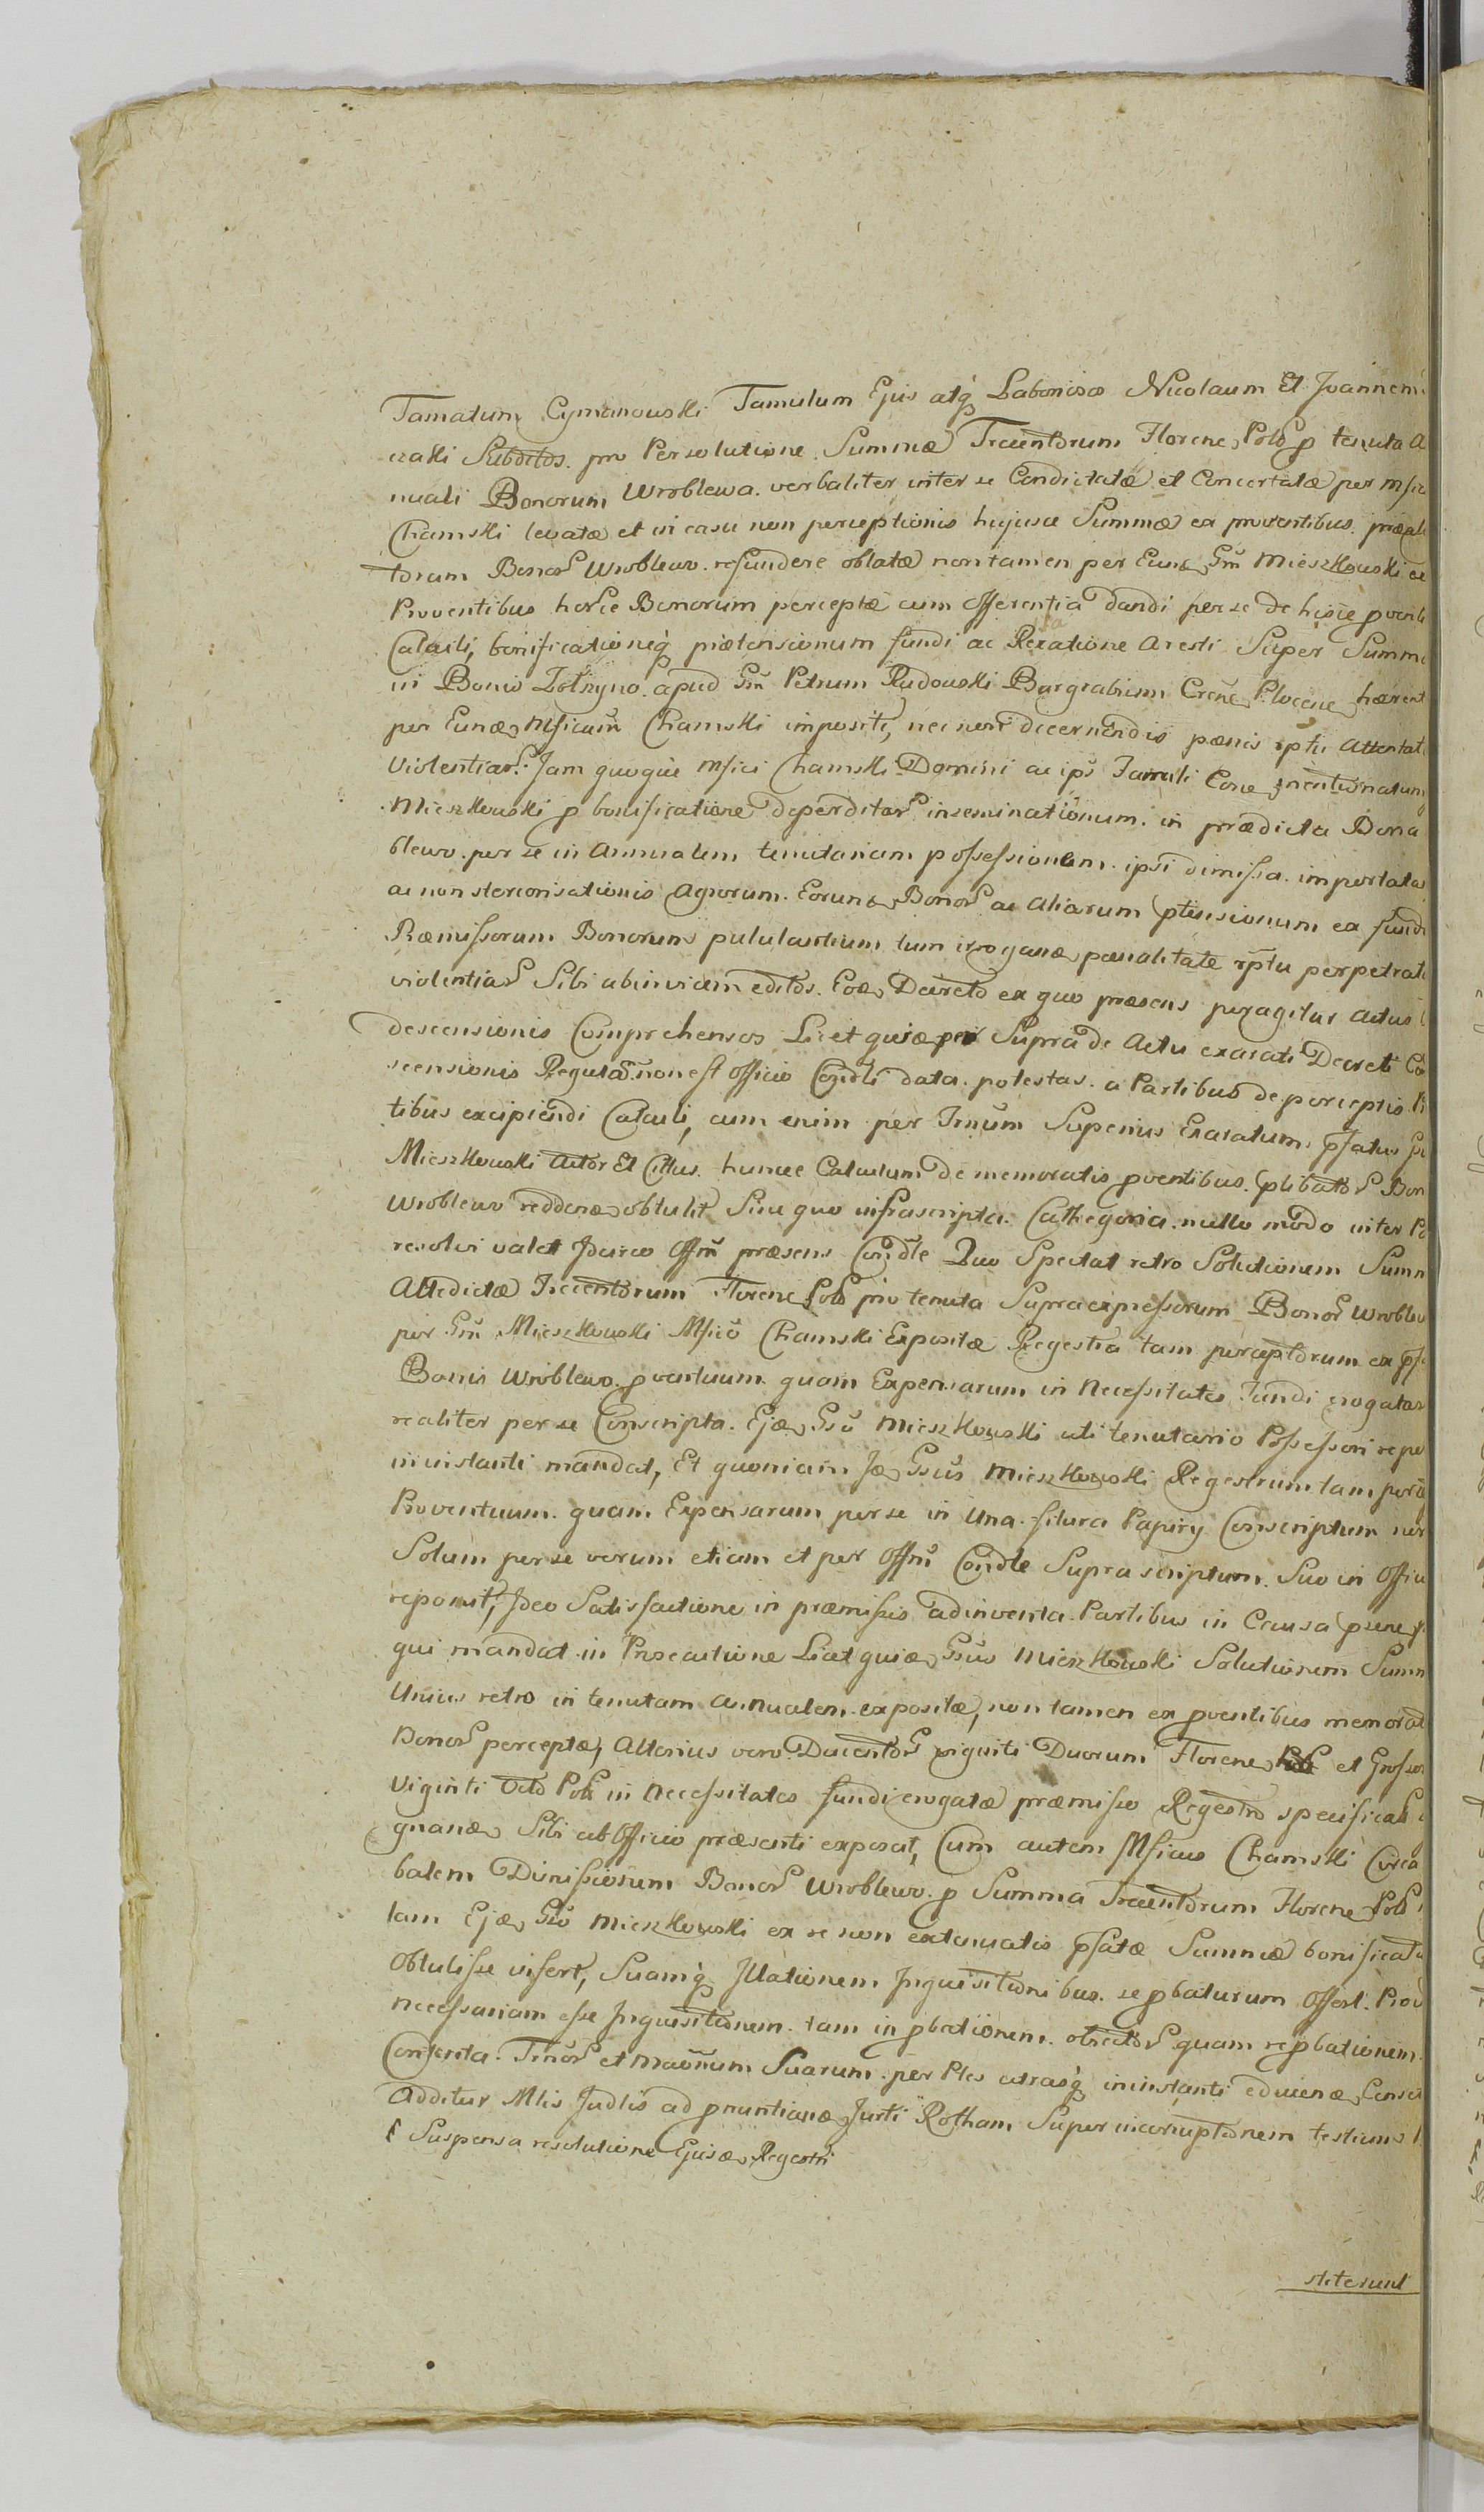 Famatum Cymanouski Famulum Ejus atq Laboriosos Nicolaum Et Joannem
czaki Subditos pro Persolutione Summæ Trecentorum Florene Pol p tenuta A
nuali Bonorum Wroblewa verbaliter inter se Condictatæ et Concertatæ per Msic
Chamski levatæ et in casu non perceptionis hujusce Summæ ex proventibus præal
torum Bonor Wroblewo refundere oblatæ non tamen per Eund Gm Mieszkouski ex
Proventibus horce Bonorum perceptæ cum offerentia dandi per se de hisce pventi
Calculi, bonificationeq prætensionum fundi ac Rexatione aresti Super Summa
in Bonis apud Gm Petrum Rudouski Burgrabium Crene Plocene hærent
per Eund Msicum Chamski impositi, nec non decernendis pænis rptu attentat
Violentiar. Jam quoque Msici Chamski Domini ac ips Famuli Cone mentionatum
Mieszkouski p bonificatione deperditar inseminationum in prædicta Bona
blewo per se in Annualem tenutariam possessionem ipsi dimissa importatas
ac non stercorisationis Agrorum Eorund Bonor ac Aliarum ptensionum ex fundi
Præmissorum Bonorum pululantium tum irrogand pænalitate rptu perpetrat
violentiar Sibi abinvicem editos Eod Decreto ex quo præsens peragitur Actus
descensionis Comprehensos Licet quid per Supra de Actu exarati Decreti Co
scensionis Regulam non est officio Condli data potestas a Partibus de perceptis P
tibus excipiendi Calculi, cum enim per Tmum Superius Exaratum pfatus G
Mieszkouski Actor Et Cittus hunce Calculum de memoratis pventibus plibator Bon
Wroblewo reddend obtulit Sine quo infrascripta Cathegoria nullo modo inter P
resolvi valet Idcirco Offm præsens Condle Quo Spectat retro Solutionem Summ
Attedictæ Trecentorum Florene Pol pro tenuta Supraexpressorum Bonor Wroblew
per Gm Mieszkouski Msico Chamski Expositæ Regestra tam perceptorum ex pf
Bonis Wroblewo pventuum quam Expensarum in Necessitates Fundi erogatar
realiter per se Conscripta Ejd Gso Mieszkouski uti tenutario Possessori repo
in instanti mandat, Et quoniam Id Gsus Mieszkouski Regestrum tam perc
Proventuum quam Expensarum per se in Una filura Papiry Conscriptum non
Solum per se verum etiam et per Offm Condle Supra scriptum Suo in Officio
reposuit, Ideo Satisfactione in præmissis adinventa Partibus in Causa psene p
qui mandat in Prosecutione Licet quid Gsus Mieszkouski Solutionem Summ
Unius retro in tenutam Annualem expositæ, non tamen ex pventibus memorat
Bonor perceptæ, Alterius vero Ducentor viginti Duorum Florene Pol et Grossor
Viginti Octo Pol in Necessitates fundi erogatæ præmisso Regestro specificat
gnand Sibi ab Officio præsenti exposcit, Cum autem Msicus Chamski Circa
balem Dimissionem Bonor Wroblewo p Summa Trecentorum Florene Pol
tam Ejd Gso Mieszkouski ex se non extenuatis pfatæ Summæ bonificatio
Obtulisse infert, Suamq Illationem Inquisitionibus se pbaturum Offert. Prou
necessariam esse Inquisitionem tam in pbationem obiector quam repbationem
Contenta Tmor et Maonum Suarum per Ptes utrasq in instanti educend Censet
Additur Mtis Judlis ad pnuntiand Jurti Rotham Super incorruptionem testium
f Suspensa resolutione Ejusd Regestri
stiterunt